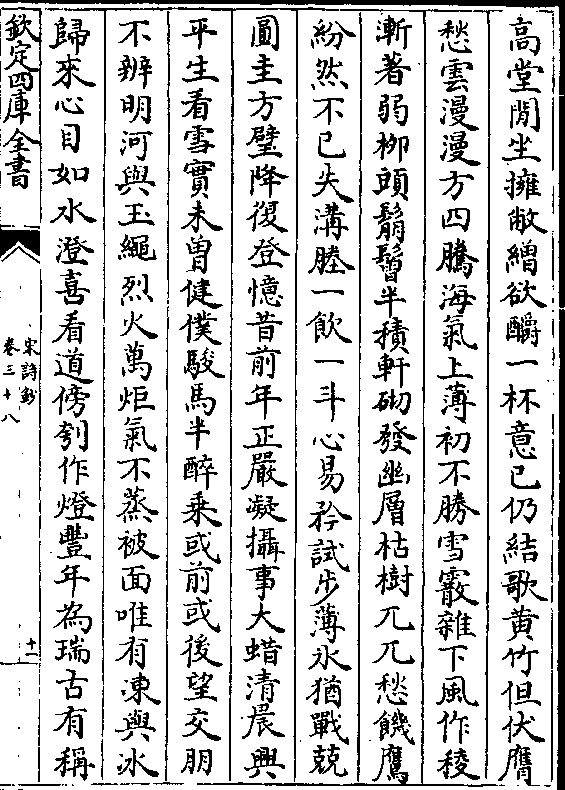 高堂閒坐擁敝繒欲釂一杯意已仍結歌黄竹但伏膺
愁雲漫漫方四騰海氣上薄初不勝雪霰雜下風作稜
漸著弱栁頭鬅鬙半積軒砌發幽層枯樹兀兀愁饑鷹
紛然不已失溝塍一飲一斗心易矜試步薄氷猶戰兢
圓圭方璧降復登憶昔前年正嚴凝攝事大蜡清晨興
平生看雪實未曽健僕駿馬半醉乗或前或後望交朋
不辨明河與玉繩烈火萬炬氣不蒸被面唯有凍與冰
歸來心目如水澄喜看道傍刳作燈豐年為瑞古有稱
欽定四庫全書
宋詩鈔
卷三十八
十一